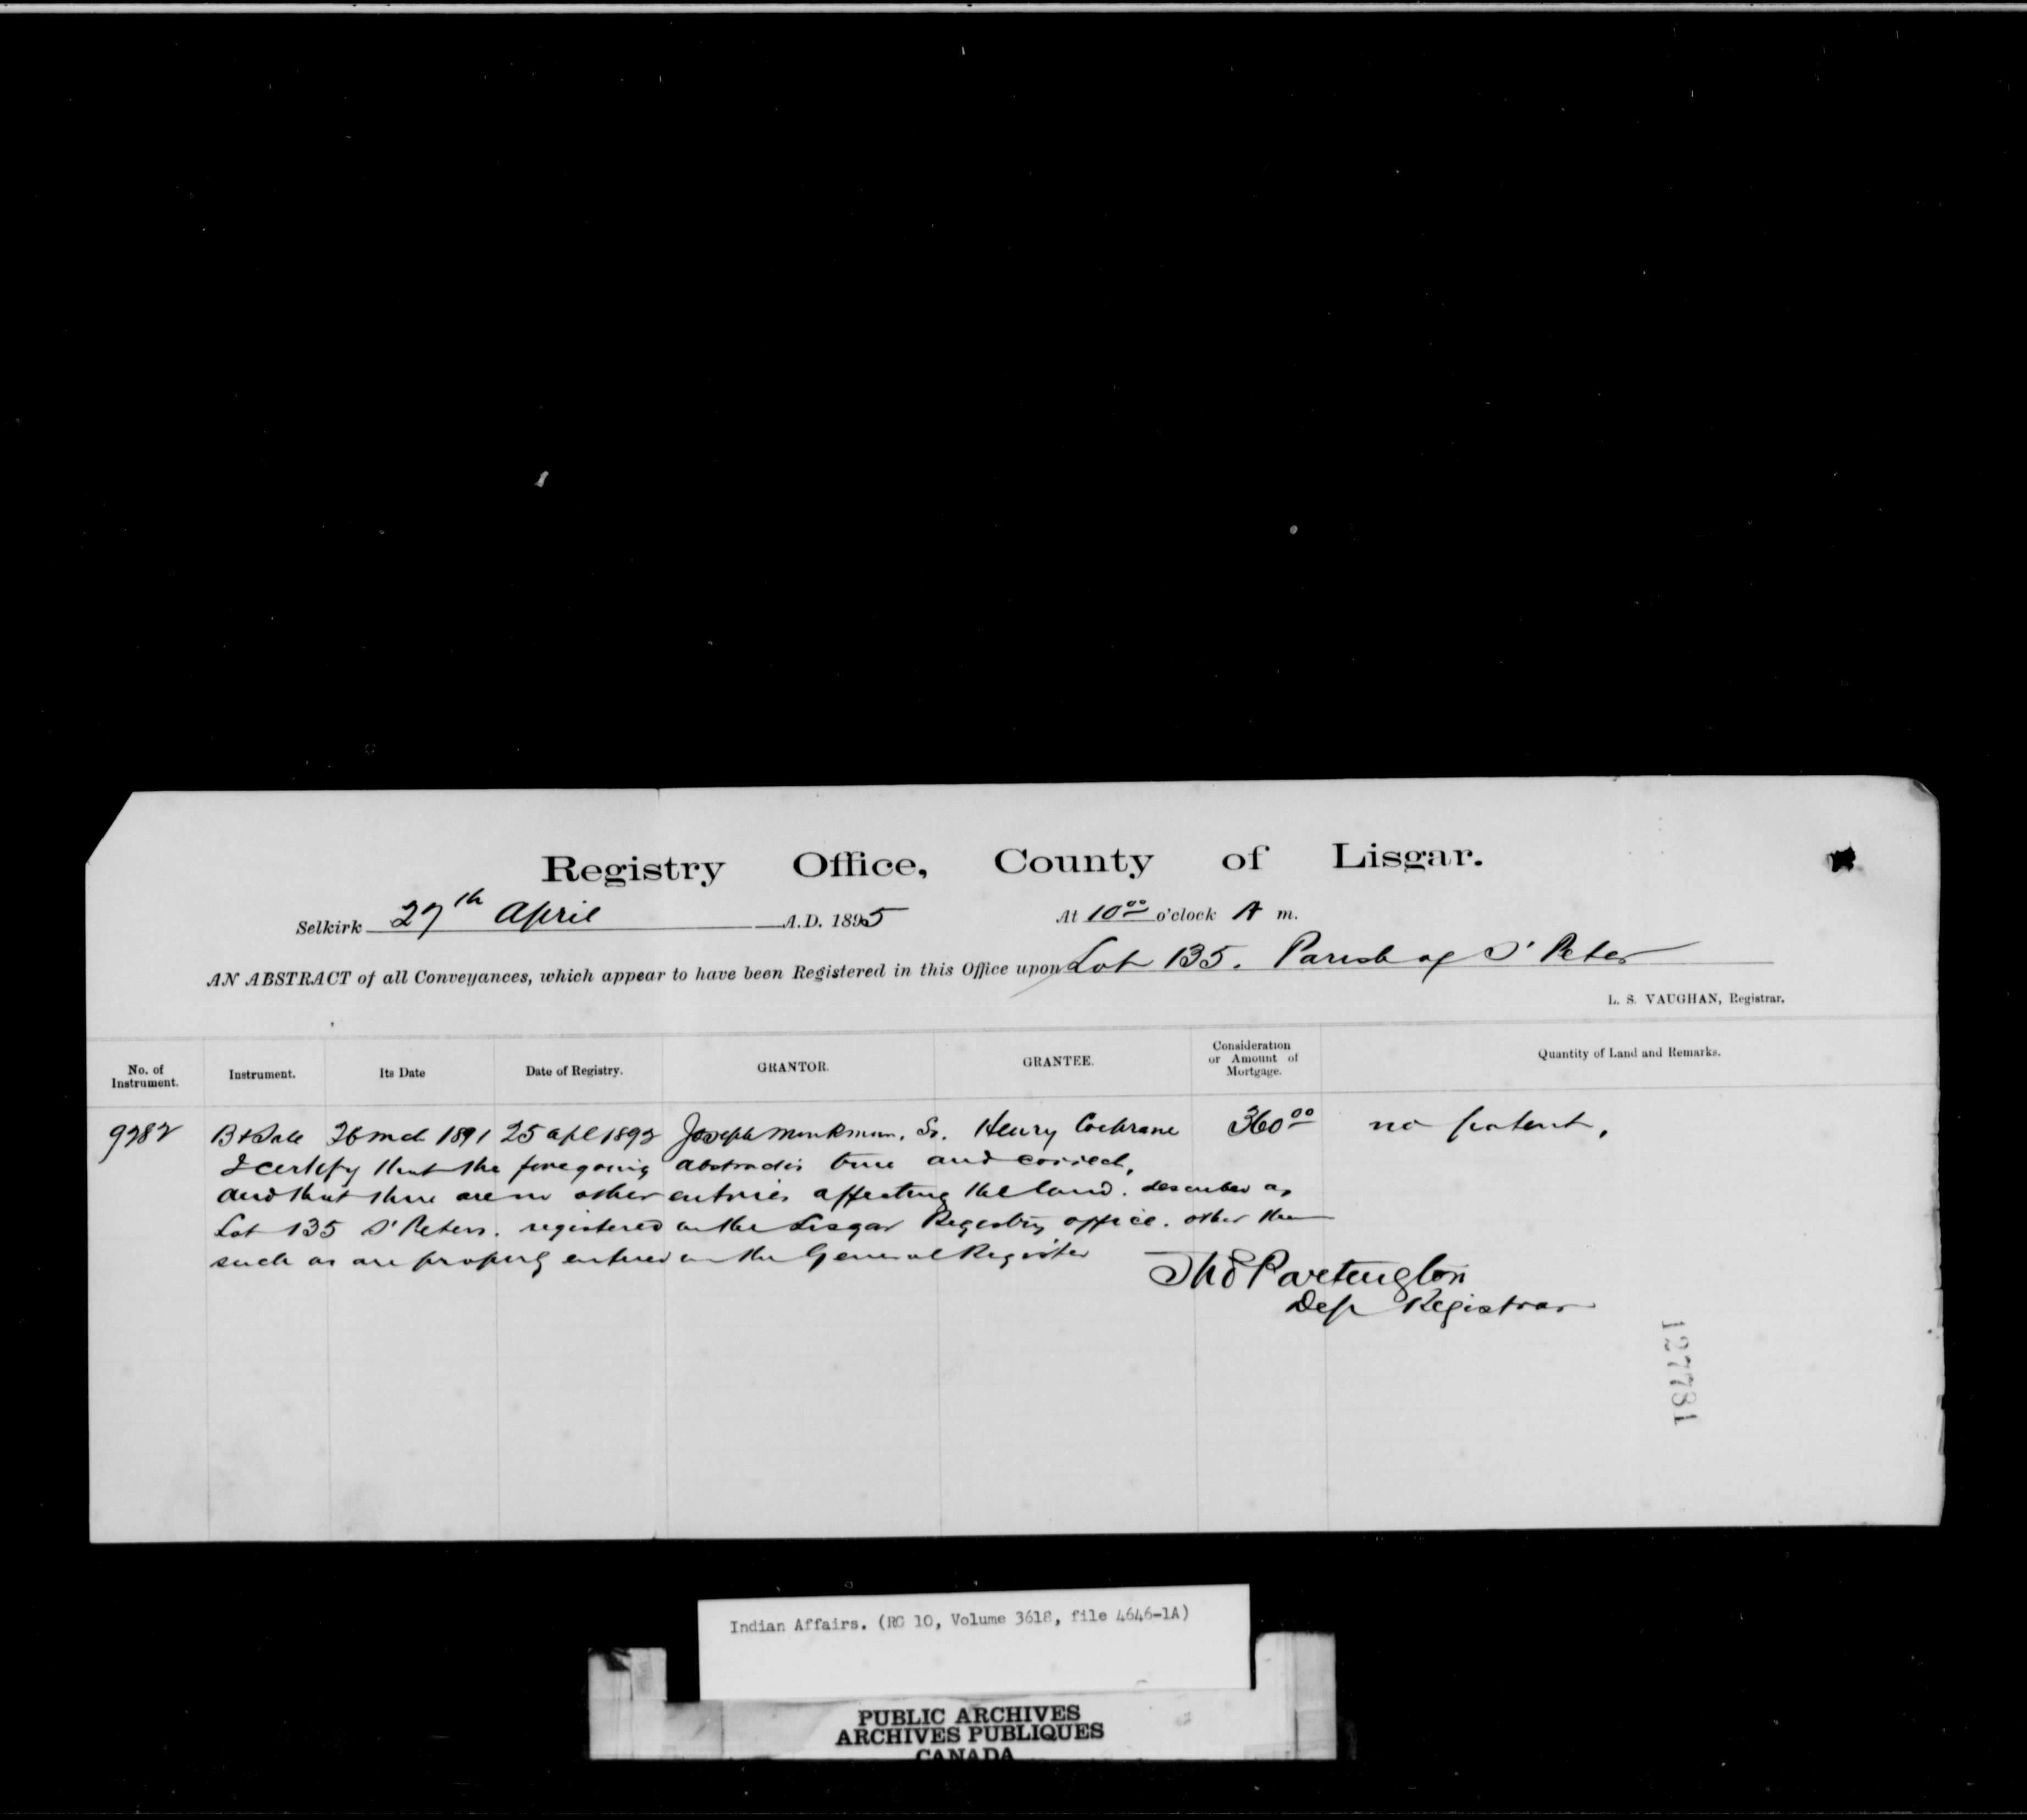 Registry Office, County of Lisgar.
Selkirk 27th April A.D. 1895 At 10 00 o'clock A m.
AN ABSTRACT of all Conveyances, which appear to have been Registered in this Office upon Lot 135. Parish of St Peter
L. S. VAUGHAN, Registrar.
No. of Instrument. Instrument. Its Date Date of Registry. GRANTOR. GRANTEE. Consideration or Amount of Mortgage. Quantity of Land and Remarks.
9282 B+Sale 26 Mch 1891 25 apl 1892 Joseph Monkman. Sr. Henry Cochrane 360 00 no patent.
I certify that the foregoing abstract is true and correct,
and that there are no other entries affecting the land. described as
Lot 135 St Peters. registered in the Lisgar Registry office. other than
such as are properly entered in the General Register
Thos Partington
Dep Registrar
127781
Indian Affairs. (RG 10, Volume 3618, file 4646-1A)
PUBLIC ARCHIVES
ARCHIVES PUBLIQUES
CANADA